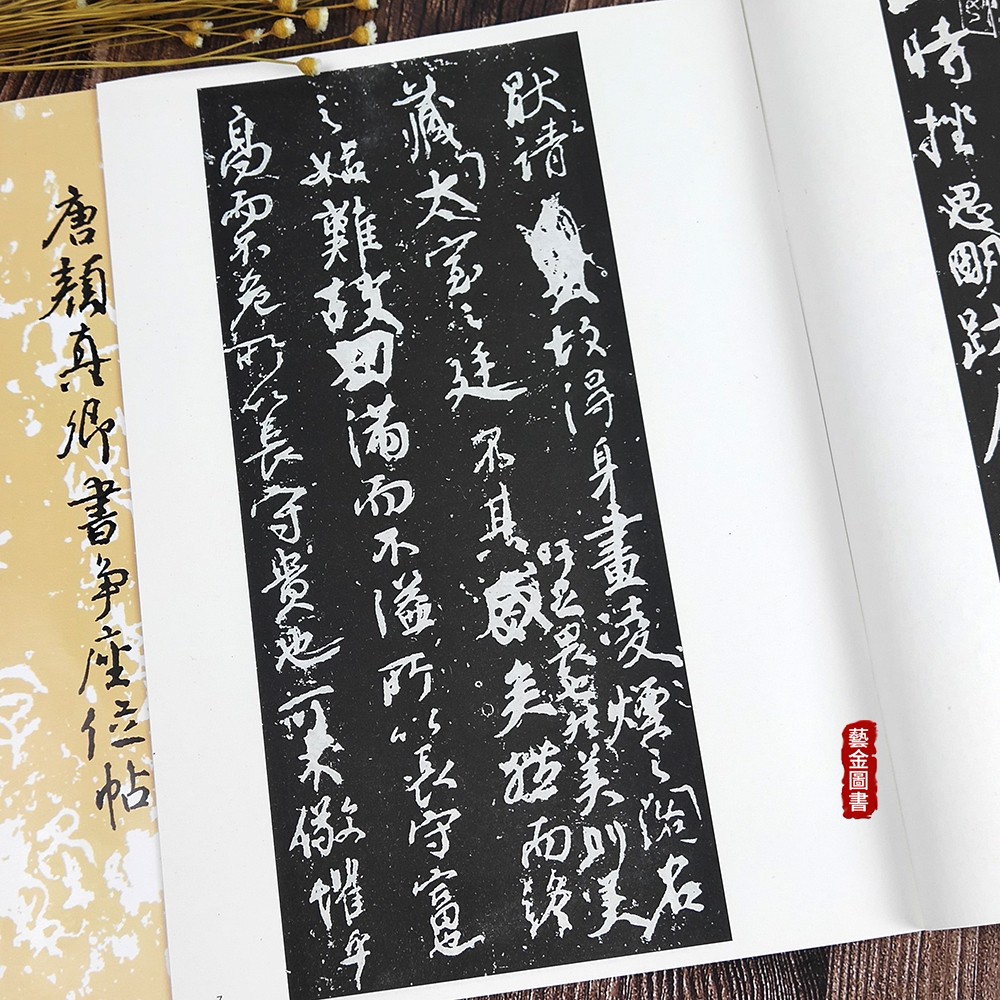 時挫思明跋
猒請故得身畫凌煙之閣名
吁足畏也然美則美
藏太室之廷其盛矣而終
之始難故曰滿而不溢所以長守富也
高而不危所以長守貴也可不儆懼乎
唐顏真卿書争座位帖
藝金圖書
7